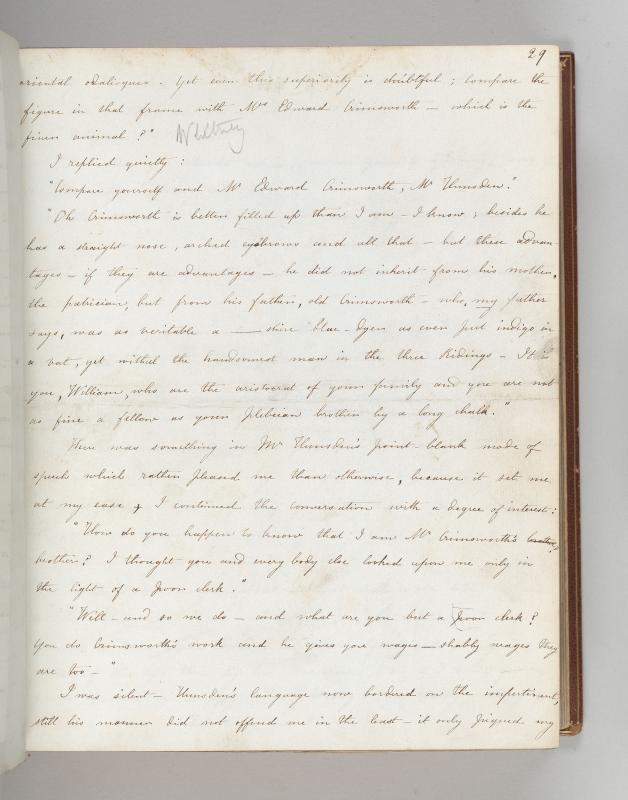 29
oriental odalisques. Yet even this superiority is doubtful; compare the
figure in that frame with Mrs Edward Crimsworth — which is the
finer animal?"
I replied quietly:
"Compare yourself and Mr Edward Crimsworth, Mr Hunsden."
"Oh Crimsworth is better filled up than I am — I know; besides he
has a straight nose, arched eyebrows and all that — but these advan-
tages — if they are advantages — he did not inherit from his mother,
the patrician, but from his father, old Crimsworth — who, my father
says, was as veritable a —shire blue-dyer as ever put indigo in
a vat, yet withal the handsomest man in the three Ridings — It is
you, William, who are the aristocrat of your family and you are not
as fine a fellow as your plebeian brother by a long chalk."
There was something in Mr Hunsden's point-blank mode of
speech which rather pleased me than otherwise, because it set me
at my ease & I continued the conversation with a degree of interest:
"How do you happen to know that I am Mr Crimsworth's brother
brother? I thought you and every body else looked upon me only in
the light of a poor clerk."
"Well — and so we do — and what are you but a poor clerk?
You do Crimsworth's work and he gives you wages — shabby wages they
are too —"
I was silent — Hunsden's language now bordered on the impertinent,
still his manner did not offend me in the least — it only piqued my